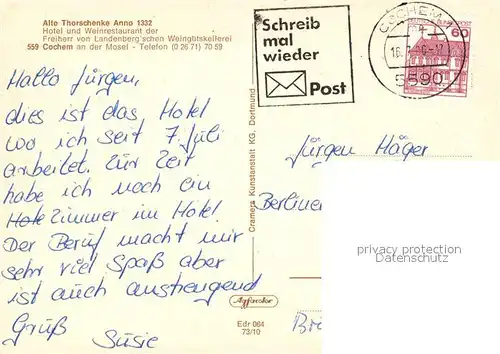 Alte Thorschenke Anno 1332
Hotel und Weinrestaurant der
Freiherr von Landenberg'schen Weingutskellerei
559 Cochem an der Mosel - Telefon (0 26 71) 70 59
Schreib
mal
wieder
Post
COCHEM
5590
60
Hallo Jürgen,
dies ist das Hotel
wo ich seit 7. Juli
arbeitet. Zur Zeit
habe ich noch ein
Hote Zimmer im Hotel.
Der Beruf macht mir
sehr viel Spaß aber
ist auch anstrengend
Gruß Susie
Cramers Kunstanstalt KG, Dortmund
Agfacolor
Edr 064
73/10
Jürgen Häger
Berliner
privacy protection
Datenschutz